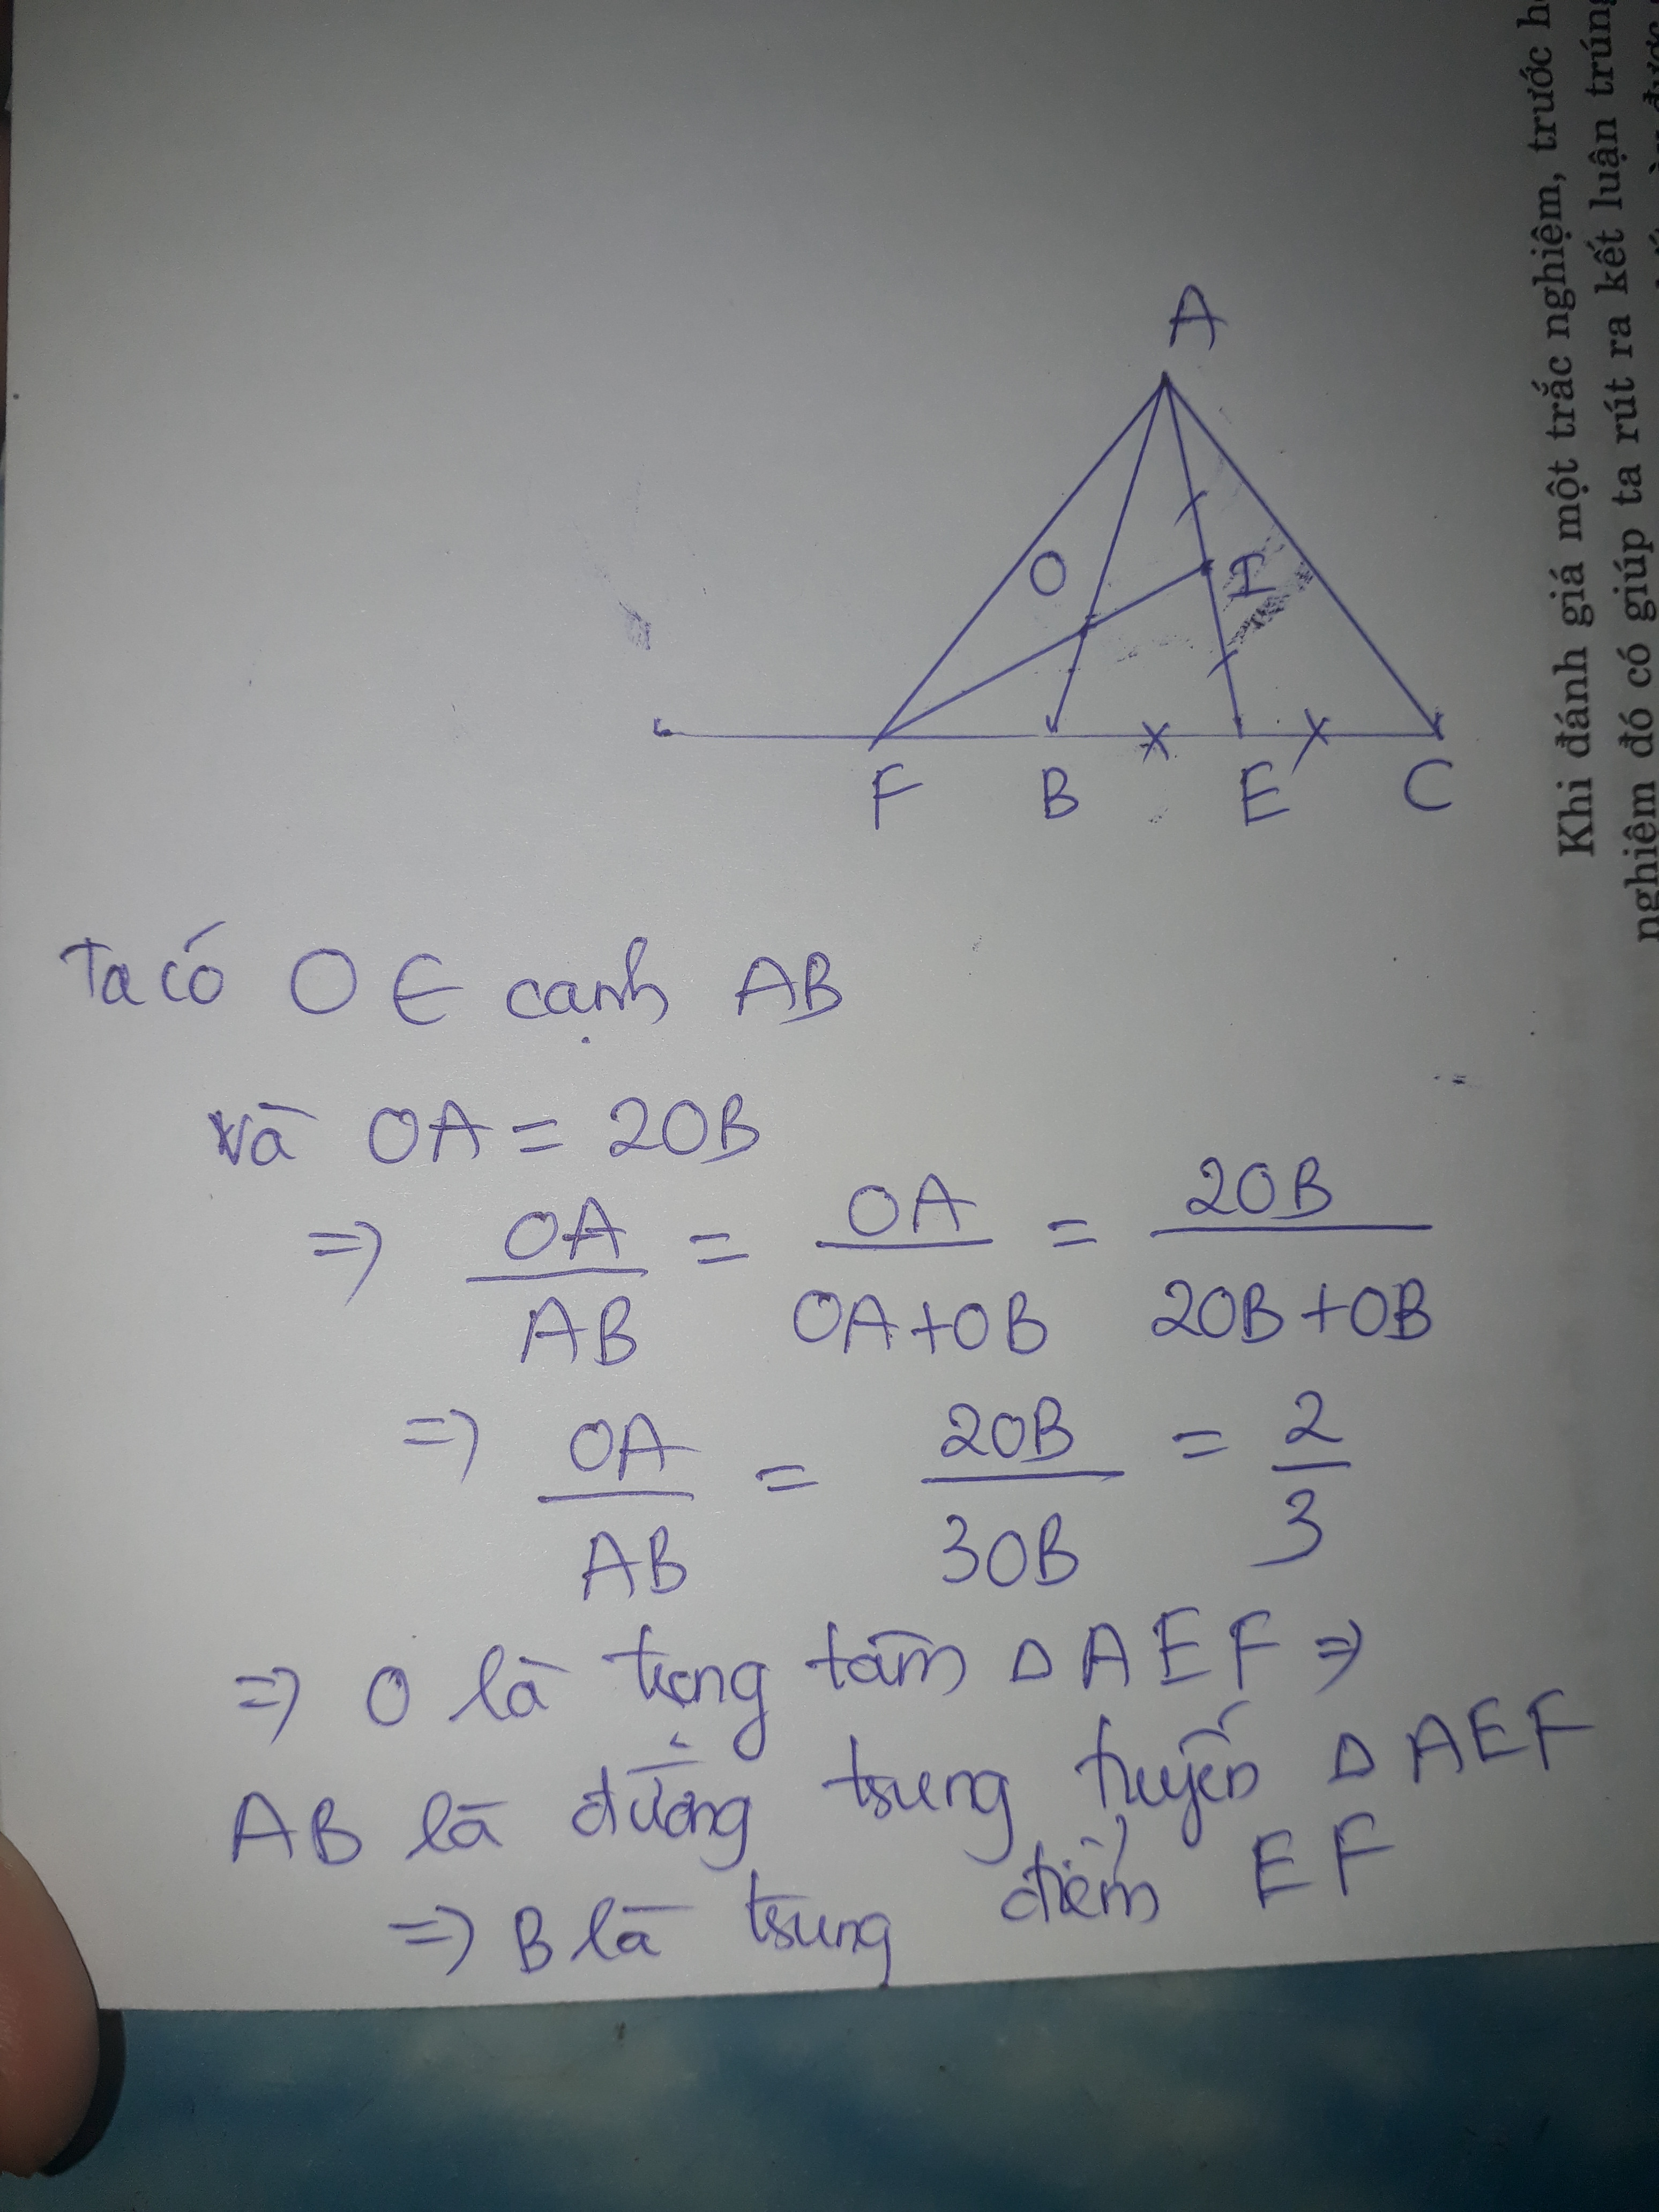 Khi đánh giá một trắc nghiệm, trước
nghiệm đó có giúp ta rút ra kết luận
A
O
I
F B E C
Ta có O ∈ cạnh AB
và OA = 2OB
=> OA/AB = OA/OA+OB = 2OB/2OB+OB
=> OA/AB = 2OB/3OB = 2/3
=> O là trọng tâm △AEF =>
AB là đường trung tuyến △AEF
=> B là trung điểm EF